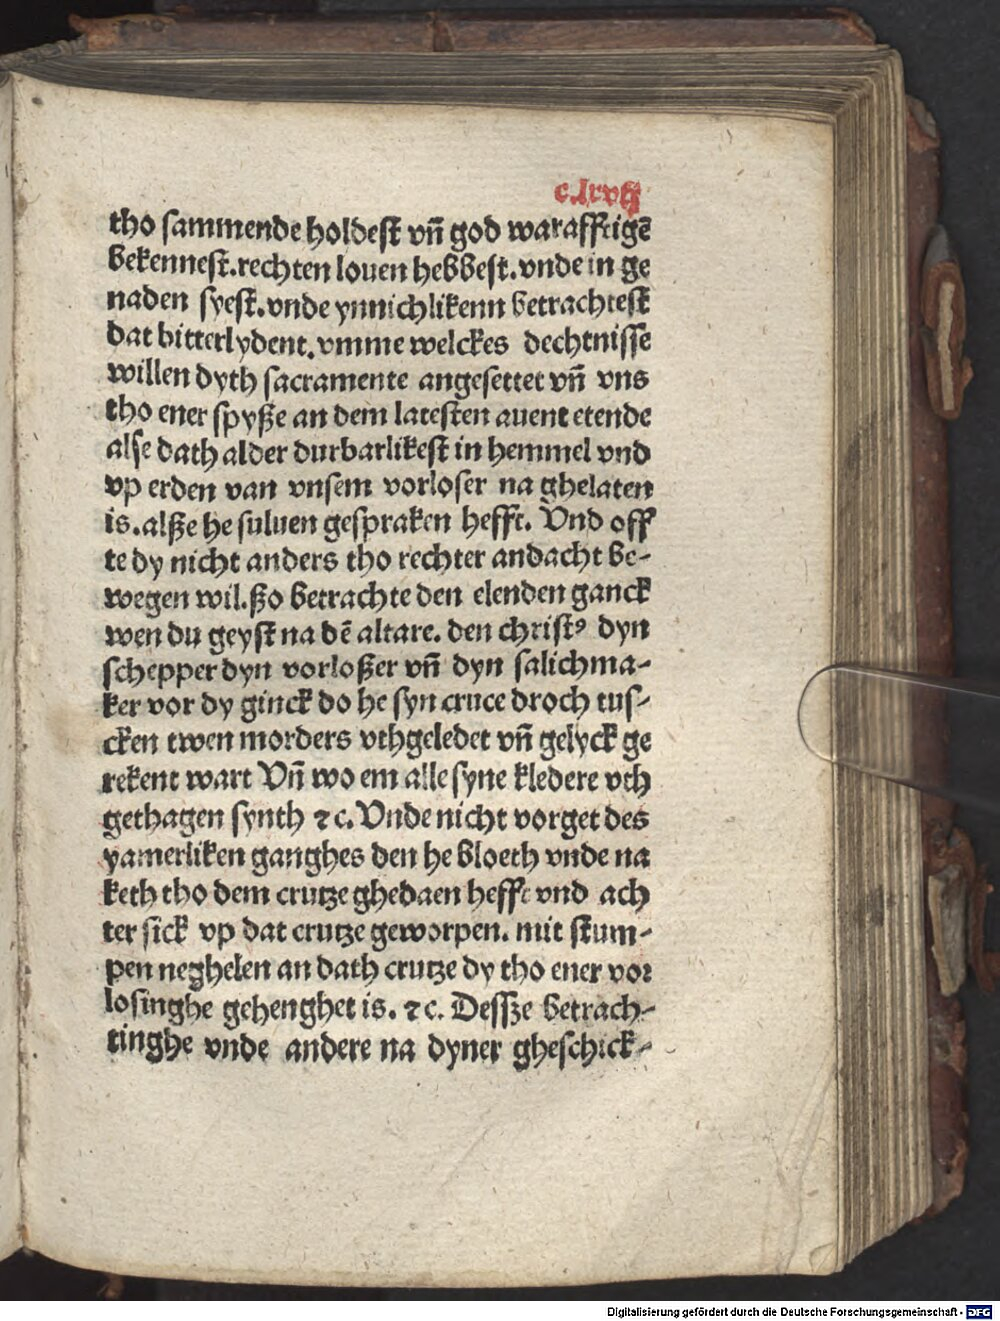 c.lxviij
tho sammende holdest vn̄ god warafftigē
bekennest.rechten louen hebbest.vnde in ge
naden syest.vnde ynnichlikenn betrachtest
dat bitterlydent.vmme welckes dechtnisse
willen dyth sacramente angesettet vn̄ vns
tho ener spyße an dem latesten auent etende
alse dath alder durbarlikest in hemmel vnd
vp erden van vnsem vorloser na ghelaten
is.alße he suluen gespraken hefft. Vnd off
te dy nicht anders tho rechter andacht be-
wegen wil.ßo betrachte den elenden ganck
wen du geyst na dē altare. den christꝰ dyn
schepper dyn vorloßer vn̄ dyn salichma-
ker vor dy ginck do he syn cruce droch tus-
cken twen morders vthgeledet vn̄ gelyck ge
rekent wart Vn̄ wo em alle syne kledere vth
gethagen synth ⁊c. Vnde nicht vorget des
yamerliken ganghes den he bloeth vnde na
keth tho dem crutze ghedaen hefft vnd ach
ter sick vp dat crutze geworpen. mit stum-
pen neghelen an dath crutze dy tho ener vor
losinghe gehenghet is. ⁊c. Dessze betrach-
tinghe vnde andere na dyner gheschick-
Digitalisierung gefördert durch die Deutsche Forschungsgemeinschaft - DFG